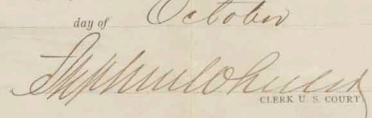 day of October
CLERK U. S. COURT